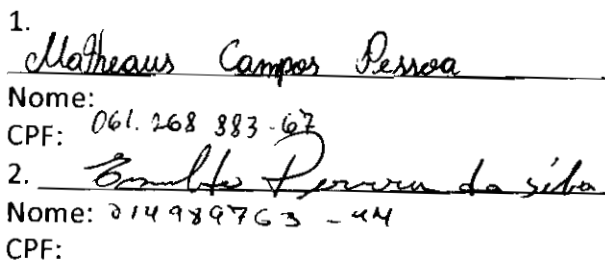 1.
Matheaus Campos Pessoa
Nome:
CPF: 061.268 883-67
2. Pereira da silva
Nome: 014989763-44
CPF: